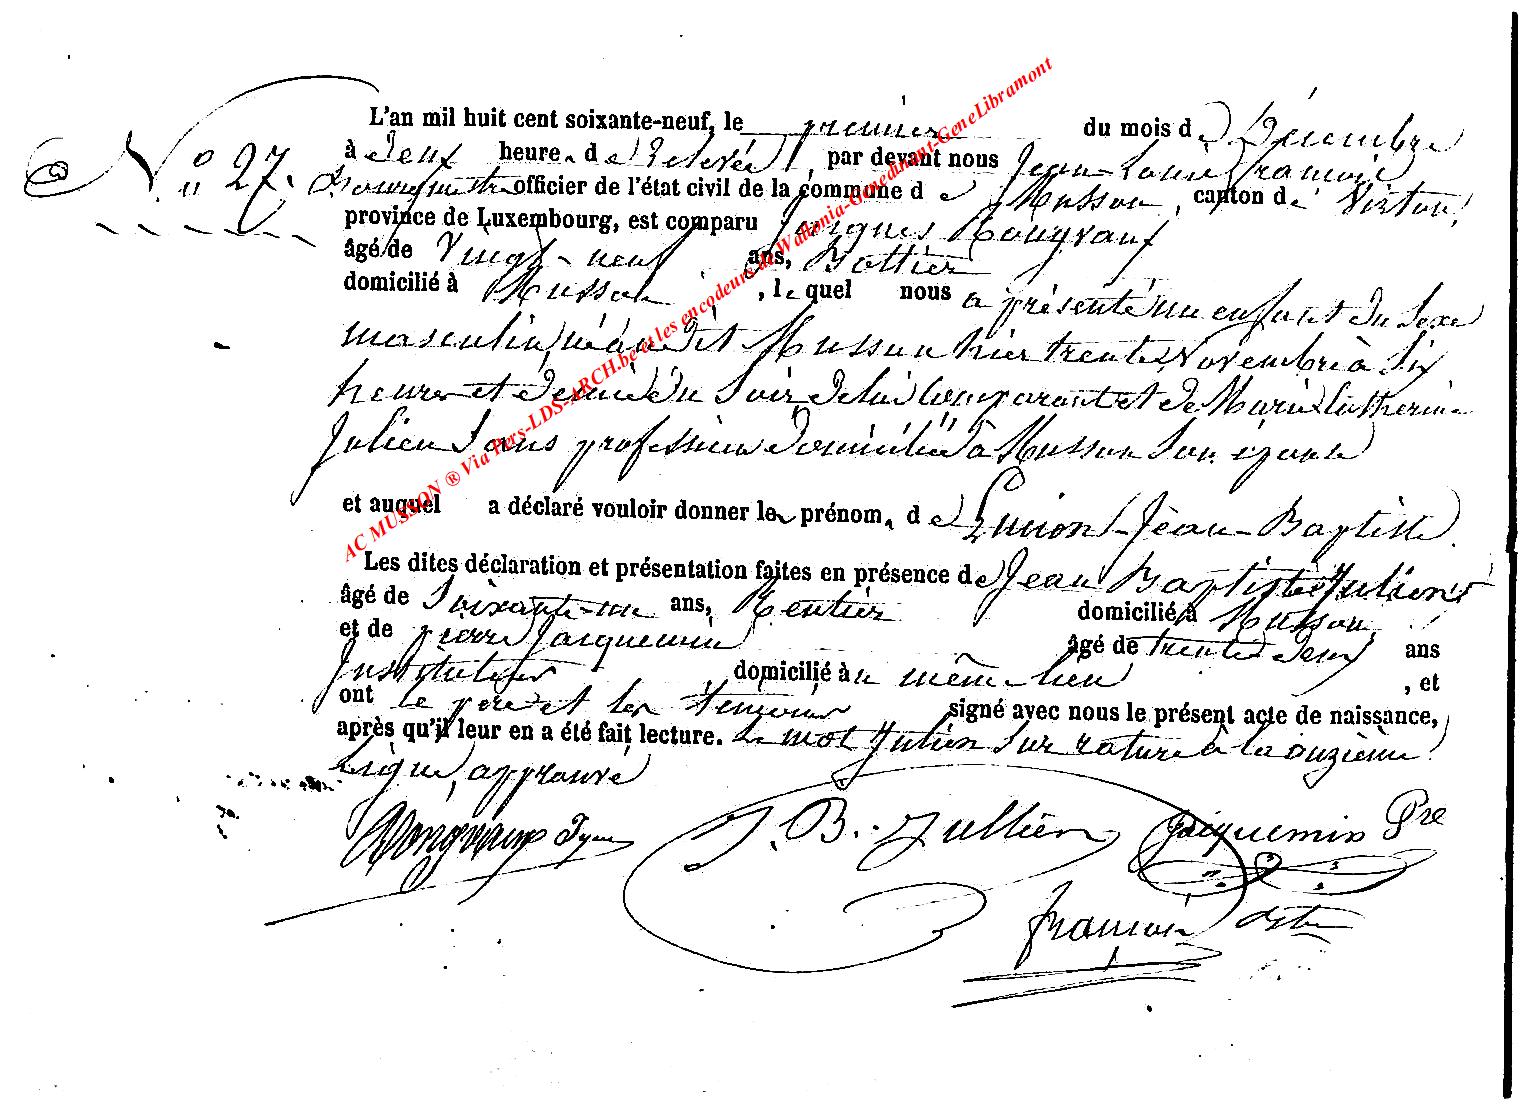 N.° 27.
L'an mil huit cent soixante-neuf, le premier du mois de Décembre
à Deux heures de Relevée, par devant nous Jean Louis François
Bourgmestre officier de l'état civil de la commune de Musson, canton de Virton,
province de Luxembourg, est comparu Jacques Rongvaux
âgé de Vingt-neuf ans, Bottier
domicilié à Musson, lequel nous a présenté un enfant du Sexe
masculin, né audit Musson hier trente Novembre à Six
heures et demie du Soir, de lui Comparant et de Marie Catherine
Julien Sans profession Domiciliée à Musson Son épouse
et auquel a déclaré vouloir donner les prénoms de Lucion-Jean-Baptiste.
Les dites déclaration et présentation faites en présence de Jean Baptiste Julien
âgé de Soixante-un ans, Rentier domicilié à Musson,
et de pierre Jacquemin âgé de trente deux ans
Instituteur, domicilié au même lieu, et
ont le père et les témoins signé avec nous le présent acte de naissance,
après qu'il leur en a été fait lecture. Le mot Julien Sur rature à la onzième
Ligne, approuvé
Rongvaux J. B. Jullien Jacquemin Pre
françois
AC MUSSON ® Via Pers-LDS-ARCH.be et les encodeurs de Wallonia-Genedinant-GeneLibramont